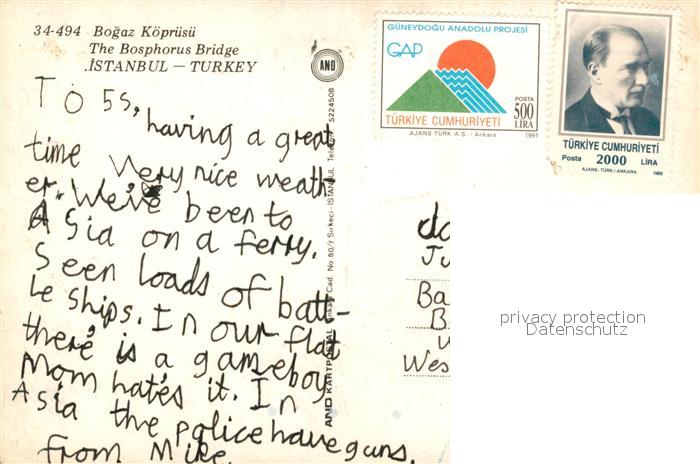 34-494 Boğaz Köprüsü
The Bosphorus Bridge
.İSTANBUL — TURKEY
AND
TO 5S, having a great
time Very nice weath-
er. We've been to
Asia on a ferry.
Seen loads of batt-
le ships. In our flat
there is a gameboy
Mom hates it. In
Asia the police have guns.
from Mike
AND KARTPOSTAL Ankara Cad. No.60/7 Sirkeci-İSTANBUL Telefon: 5224508
GÜNEYDOĞU ANADOLU PROJESİ
GAP
POSTA
500
LİRA
TÜRKİYE CUMHURİYETİ
AJANS-TÜRK A.Ş. / Ankara 1991
TÜRKİYE CUMHURİYETİ
Posta 2000 LİRA
AJANS-TÜRK / ANKARA 1989
Ju
Ba
B
Wes
privacy protection
Datenschutz